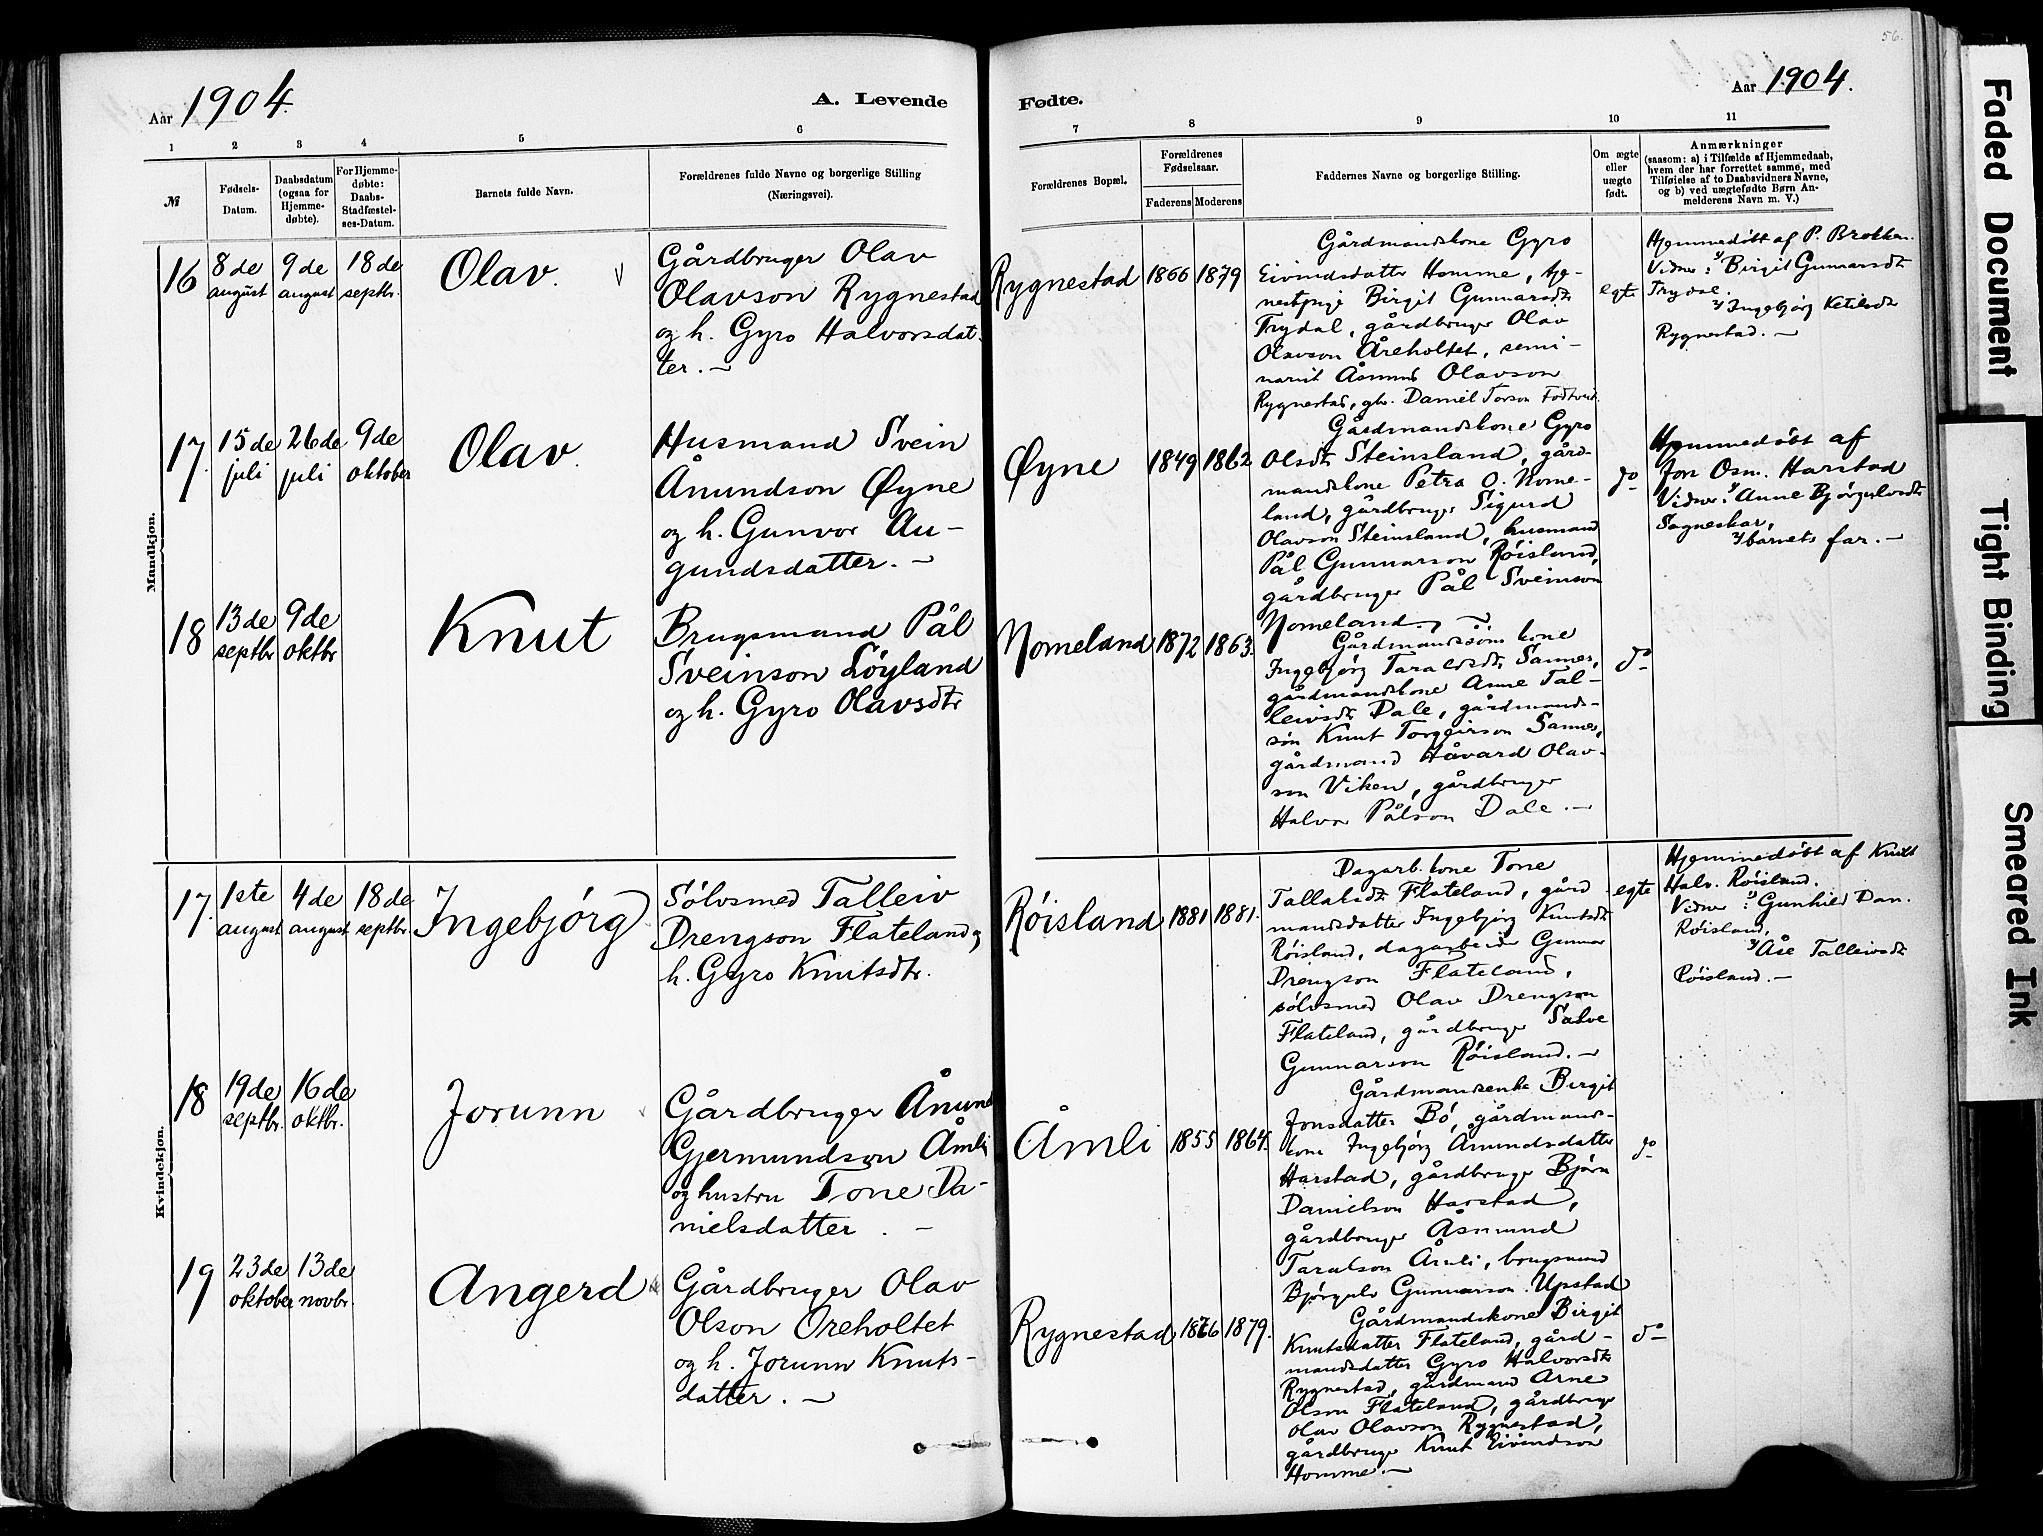 56.
Aar 1904.
A. Levende
Fødte.
Aar 1904.
1 2 3 4 5 6
7 8 9 10 11
№
Fødsels-
Datum.
Daabsdatum
(ogsaa for
Hjemme-
døbte).
For Hjemme-
døbte:
Daabs-
Stadfæstel-
ses-Datum.
Barnets fulde Navn.
Forældrenes fulde Navne og borgerlige Stilling
(Næringsvei).
Forældrenes Bopæl.
Forældrenes
Fødselsaar.
Faderens Moderens
Faddernes Navne og borgerlige Stilling.
Om ægte
eller
uægte
født.
Anmærkninger
(saasom: a) i Tilfælde af Hjemmedaab,
hvem der har forrettet samme, med
Tilføielse af to Daabsvidners Navne,
og b) ved uægtefødte Børn An-
melderens Navn m. V.)
Mandkjøn.
16
8de
august
9de
august
18de
septbr.
Olav.
Gårdbruger Olav
Olavson Rygnestad
og h. Gyro Halvorsdat-
ter. —
Rygnestad
1866
1879
Gårdmandskone Gyro
Eivindsdatter Homme,
Birgit Gunnarsdtr
Trydal, gårdbruger Olav
Olavson Åreholtet, semi-
narist Åsmund Olavson
Rygnestad, gbr. Daniel Torson
egte
Hjemmedøbt af P. Brokken.
Vidner: 1/ Birgit Gunnarsdtr
Trydal.
2/ Ingebjørg Ketilsdtr
Rygnestad. —
17.
15de
juli
26de
juli
9de
oktober
Olav.
Husmand Svein
Ånundson Øyne
og h. Gunvor Au-
gundsdatter. —
Øyne
1849
1862
Gårdmandskone Gyro
Olsdtr Steinsland, gård-
mandskone Petra O. Nome-
land, gårdbruger Sigurd
Olavson Steinsland, husmand
Pål Gunnarson Røisland,
gårdbruger Pål Sveinson
Nomeland. —
do
Hjemmedøbt af
Jon Osm. Harstad
Vidner: 1/ Anne Bjørgulvsdtr
Sagneskar,
2/ barnets far. —
18
13de
septbr
9de
oktbr
Knut
Brugsmand Pål
Sveinson Løyland
og h. Gyro Olavsdtr
Nomeland
1872
1863.
Gårdmandssøns kone
Ingebjørg Taraldsdtr Sannes,
gårdmandskone Anne Tal-
leivsdtr Dale, gårdmands-
søn Knut Torgeirson Sannes,
gårdmand Håvard Olav-
son Viken, gårdbruger
Halvor Pålson Dale. —
do
Kvindekjøn.
17.
1ste
august
4de
august
18de
septbr.
Ingebjørg
Sølvsmed Talleiv
Drengson Flateland og
h. Gyro Knutsdtr.
Røisland
1881
1881.
Dagarb.kone Tone
Flateland, gård
mandsdatter Ingebjørg Knutsdtr
Røisland, dagarbeider Gunnar
Drengson Flateland,
sølvsmed Olav Drengson
Flateland, gårdbruger Salve
Gunnarson Røisland. —
egte
Hjemmedøbt af Knut
Halv. Røisland.
Vidner: 1/ Gunhild Dan.
Røisland,
2/ Åse Talleivsdtr
Røisland. —
18
19de
septbr.
16de
oktbr.
Jorunn
Gårdbruger Ånund
Gjermundson Åmli
og hustru Tone Da-
nielsdatter. —
Åmli
1855
1864.
Gårdmandsenke Birgit
Jonsdatter Bø, gårdmands-
kone Ingebjørg Ånundsdatter
Harstad, gårdbruger Bjørn
Danielson Harstad,
gårdbruger Åsmund
Taralson Åmli, brugsmand
Bjørgulv Gunnarson Upstad
do
19
23de
oktober
13de
novbr.
Angerd
Gårdbruger Olav
Olson Oreholtet
og h. Jorunn Knuts-
datter. —
Rygnestad
1876
1879.
Gårdmandskone Birgit
Knutsdatter Flateland, gård-
mandsdatter Gyro Halvorsdtr
Rygnestad, gårdmand Arne
Olson Flateland, gårdbruger
Olav Olavson Rygnestad,
gårdbruger Knut Eivindson
Homme. —
do
Faded Document
Tight Binding
Smeared Ink